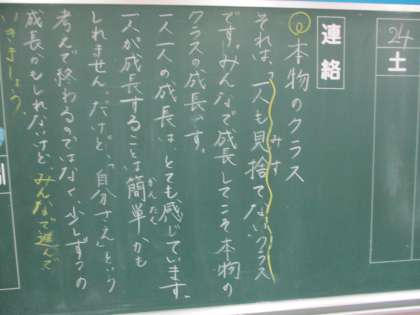 24
土
連絡
◎本物のクラス
それは、一人も見捨てないクラス
みす
です。みんなで成長してこそ本物の
クラスの成長です。
一人一人の成長は、とても感じています。
一人が成長することは簡単かも
かんたん
しれません。だけど、「自分さえ」という
考えで終わるのではなく少しずつの
成長かもしれないけど、みんなで進んで
いきましょう。